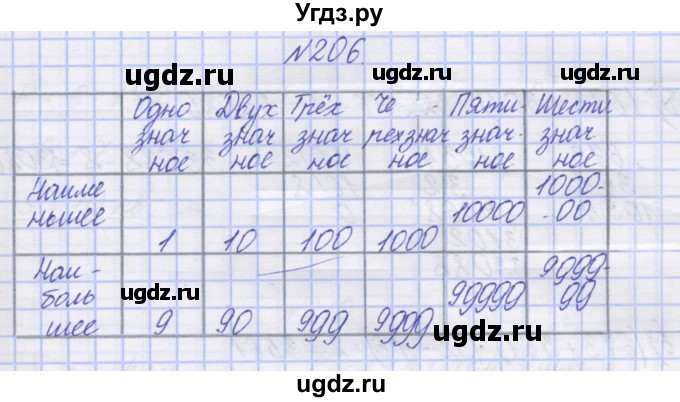 Угдз.ру
№206.
ugdz.ru ugdz.ru
Одно Двух Трёх Че - Пяти- Шести
знач знач знач рехзнач знач- знач
ное ное ное ное ное ное
Наиме 1000-
ньшее 1 10 100 1000 10000 -00
Наи- 9999-
боль 99999 99
шее 9 90 999 9999
ugdz.ru
ugdz.ru
ugdz.ru